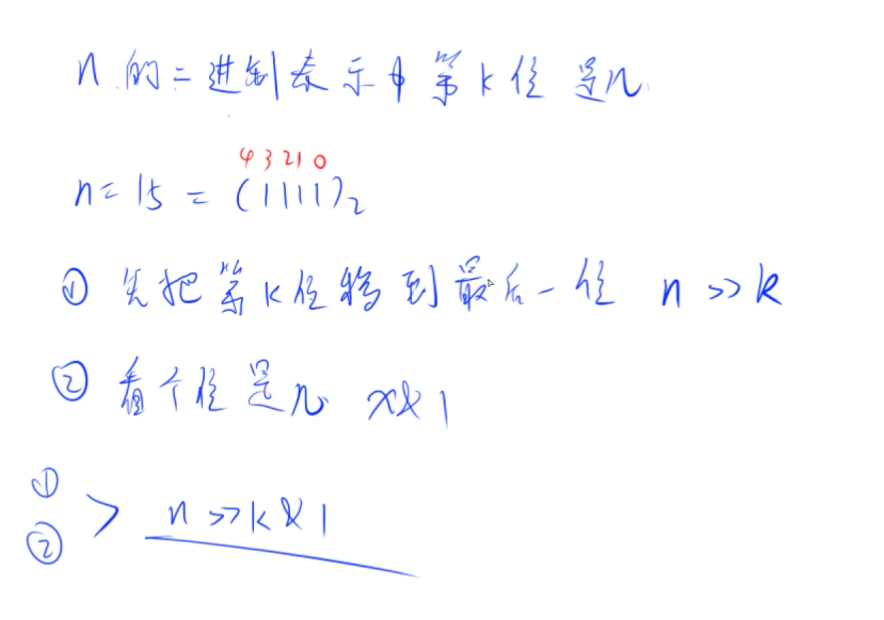 n 的二进制表示中第k位是几
4 3 2 1 0
n = 15 = (1111)₂
① 先把第k位移到最后一位 n >> k
② 看个位是几 x & 1
①
② > n >> k & 1